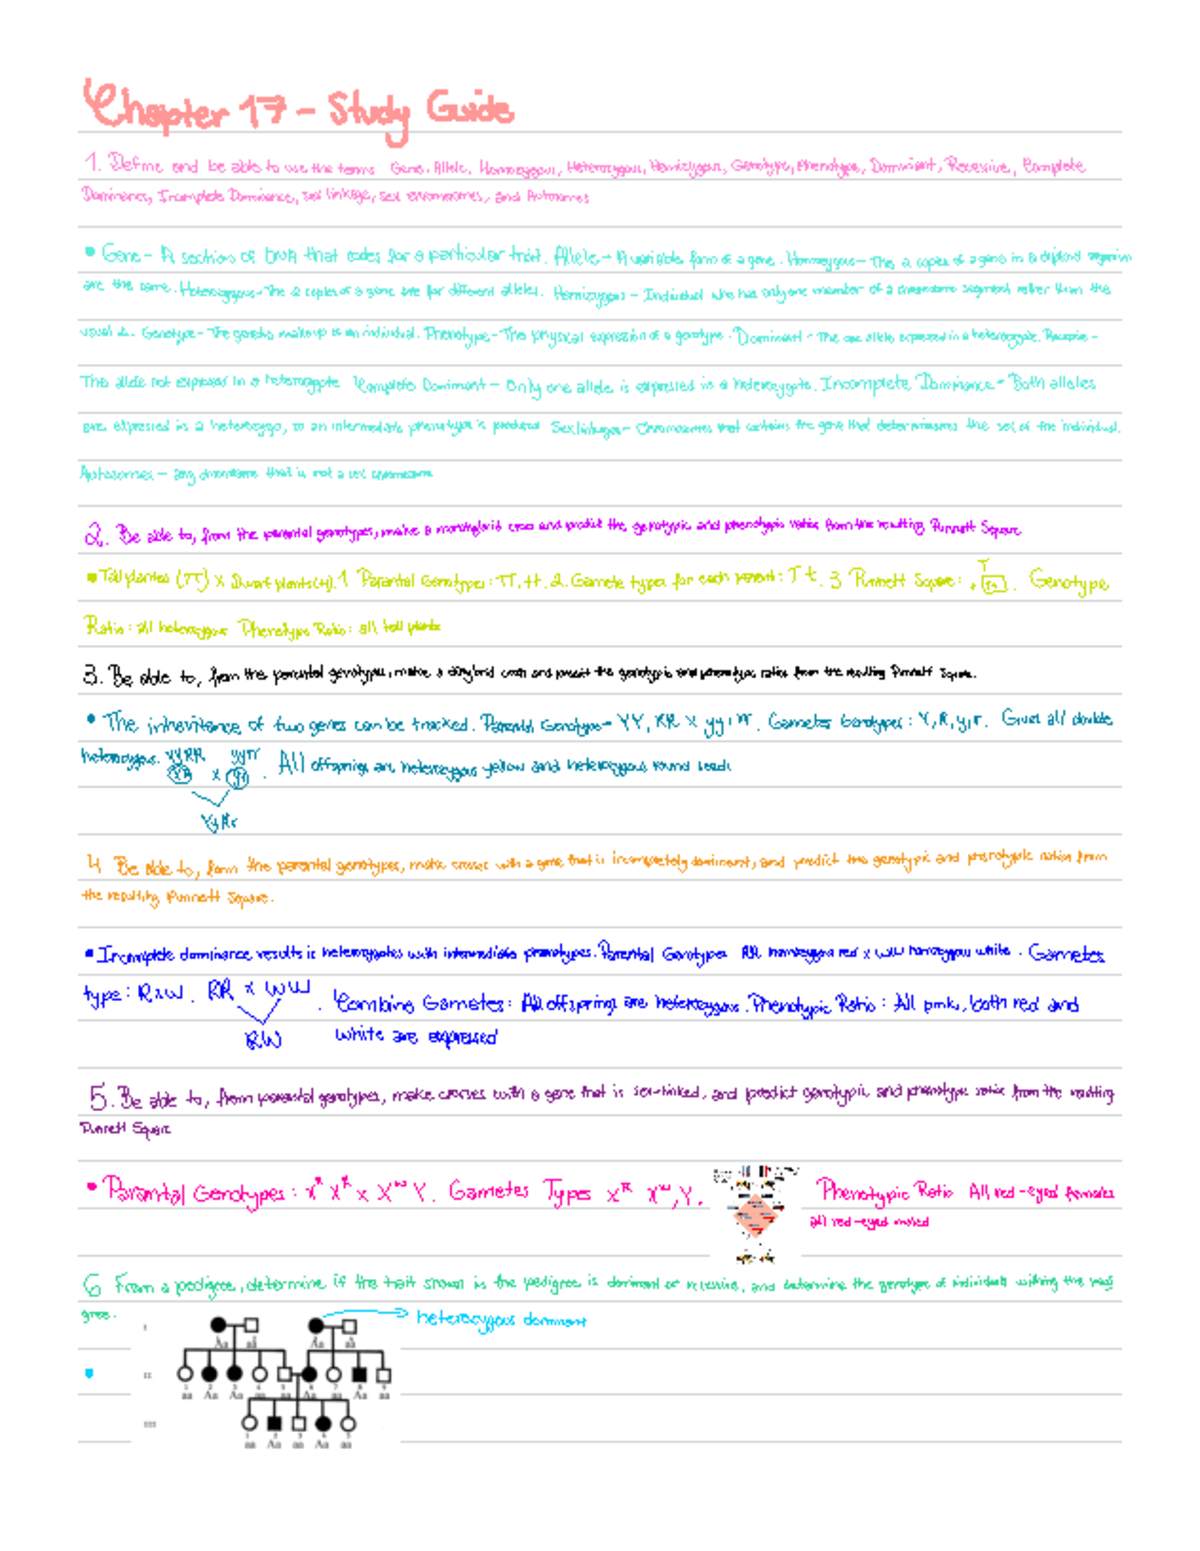 Chapter 17 - Study Guide
1. Define and be able to use the terms Gene, Allele, Homozygous, Heterozygous, Hemizygous, Genotype, Phenotype, Dominant, Recessive, Complete
Dominance, Incomplete Dominance, sex linkage, sex chromosomes, and Autosomes
• Gene - A section of DNA that codes for a particular trait. Allele - A variable form of a gene. Homozygous - The 2 copies of a gene in a diploid organism
are the same. Heterozygous - The 2 copies of a gene are for different alleles. Hemizygous - Individual who has only one member of a chromosome segment rather than the
usual 2. Genotype - The genetic makeup of an individual. Phenotype - The physical expression of a genotype. Dominant - The one allele expressed in a heterozygote. Recessive -
The allele not expressed in a heterozygote Complete Dominant - Only one allele is expressed in a heterozygote. Incomplete Dominance - Both alleles
are expressed in a heterozygo, so an intermediate phenotype is produced Sex linkages - Chromosomes that contains the gene that determines the sex of the individual.
Autosomes - any chromosome that is not a sex chromosome
2. Be able to, from the parental genotypes, make a monohybrid cross and predict the genotypic and phenotypic ratios from the resulting Punnett Square
• Tall plantes (TT) x Dwarf plants (tt). 1 Parental Genotypes: TT, tt. 2. Gamete types for each parent: T t. 3 Punnett Square: T t Tt . Genotype
Ratio: all heterozygous Phenotype Ratio: all tall plants
3. Be able to, from the parental genotypes, make a dihybrid cross and predict the genotypic and phenotypic ratios from the resulting Punnett Square.
• The inheritance of two genes can be tracked. Parental Genotype - YY, RR x yy, rr. Gametes Genotypes: Y, R, y, r. Gives all double
heterozygous. yyRR yyrr . All offspring are heterozygous yellow and heterozygous round seeds
YR x yr
YyRr
4 Be able to, form the parental genotypes, make crosses with a gene that is incompletely dominant, and predict the genotypic and phenotypic ratios from
the resulting Punnett Square.
• Incomplete dominance results is heterozygotes with intermediate phenotypes. Parental Genotypes RR homozygous red x WW homozygous white . Gametes
type: R x W . RR x WW . Combing Gametes: All offspring are heterozygous. Phenotypic Ratio: All pink, both red and
RW white are expressed
5. Be able to, from parental genotypes, make crosses with a gene that is sex-linked, and predict genotypic and phenotype ratios from the resulting
Punnett Square
• Parental Genotypes: X^R X^R x X^w Y. Gametes Types X^R X^w, Y. Phenotypic Ratio All red-eyed females
all red-eyed males
6 From a pedigree, determine if the trait shown is the pedigree is dominant or recessive, and determine the genotype of individuals withing the pedi
gree. heterozygous dominant
I
Aa aa Aa aa
II
1 2 3 4 5 6 7 8 9
aa Aa Aa aa aa Aa aa Aa aa
III
1 2 3 4 5
aa Aa aa Aa aa